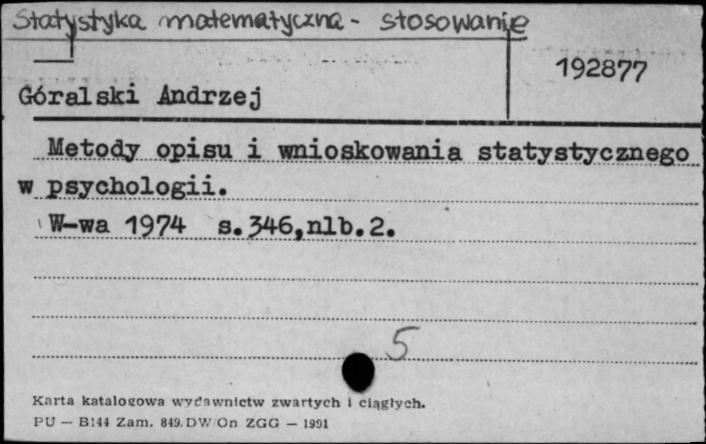 Statystyka matematyczna - stosowanie
192877
Góralski Andrzej
Metody opisu i wnioskowania statystycznego
w psychologii.
W-wa 1974 s.346,nlb.2.
5
Karta katalogowa wydawnictw zwartych i ciągłych.
PU — B144 Zam. 849.DW/On ZGG — 1991